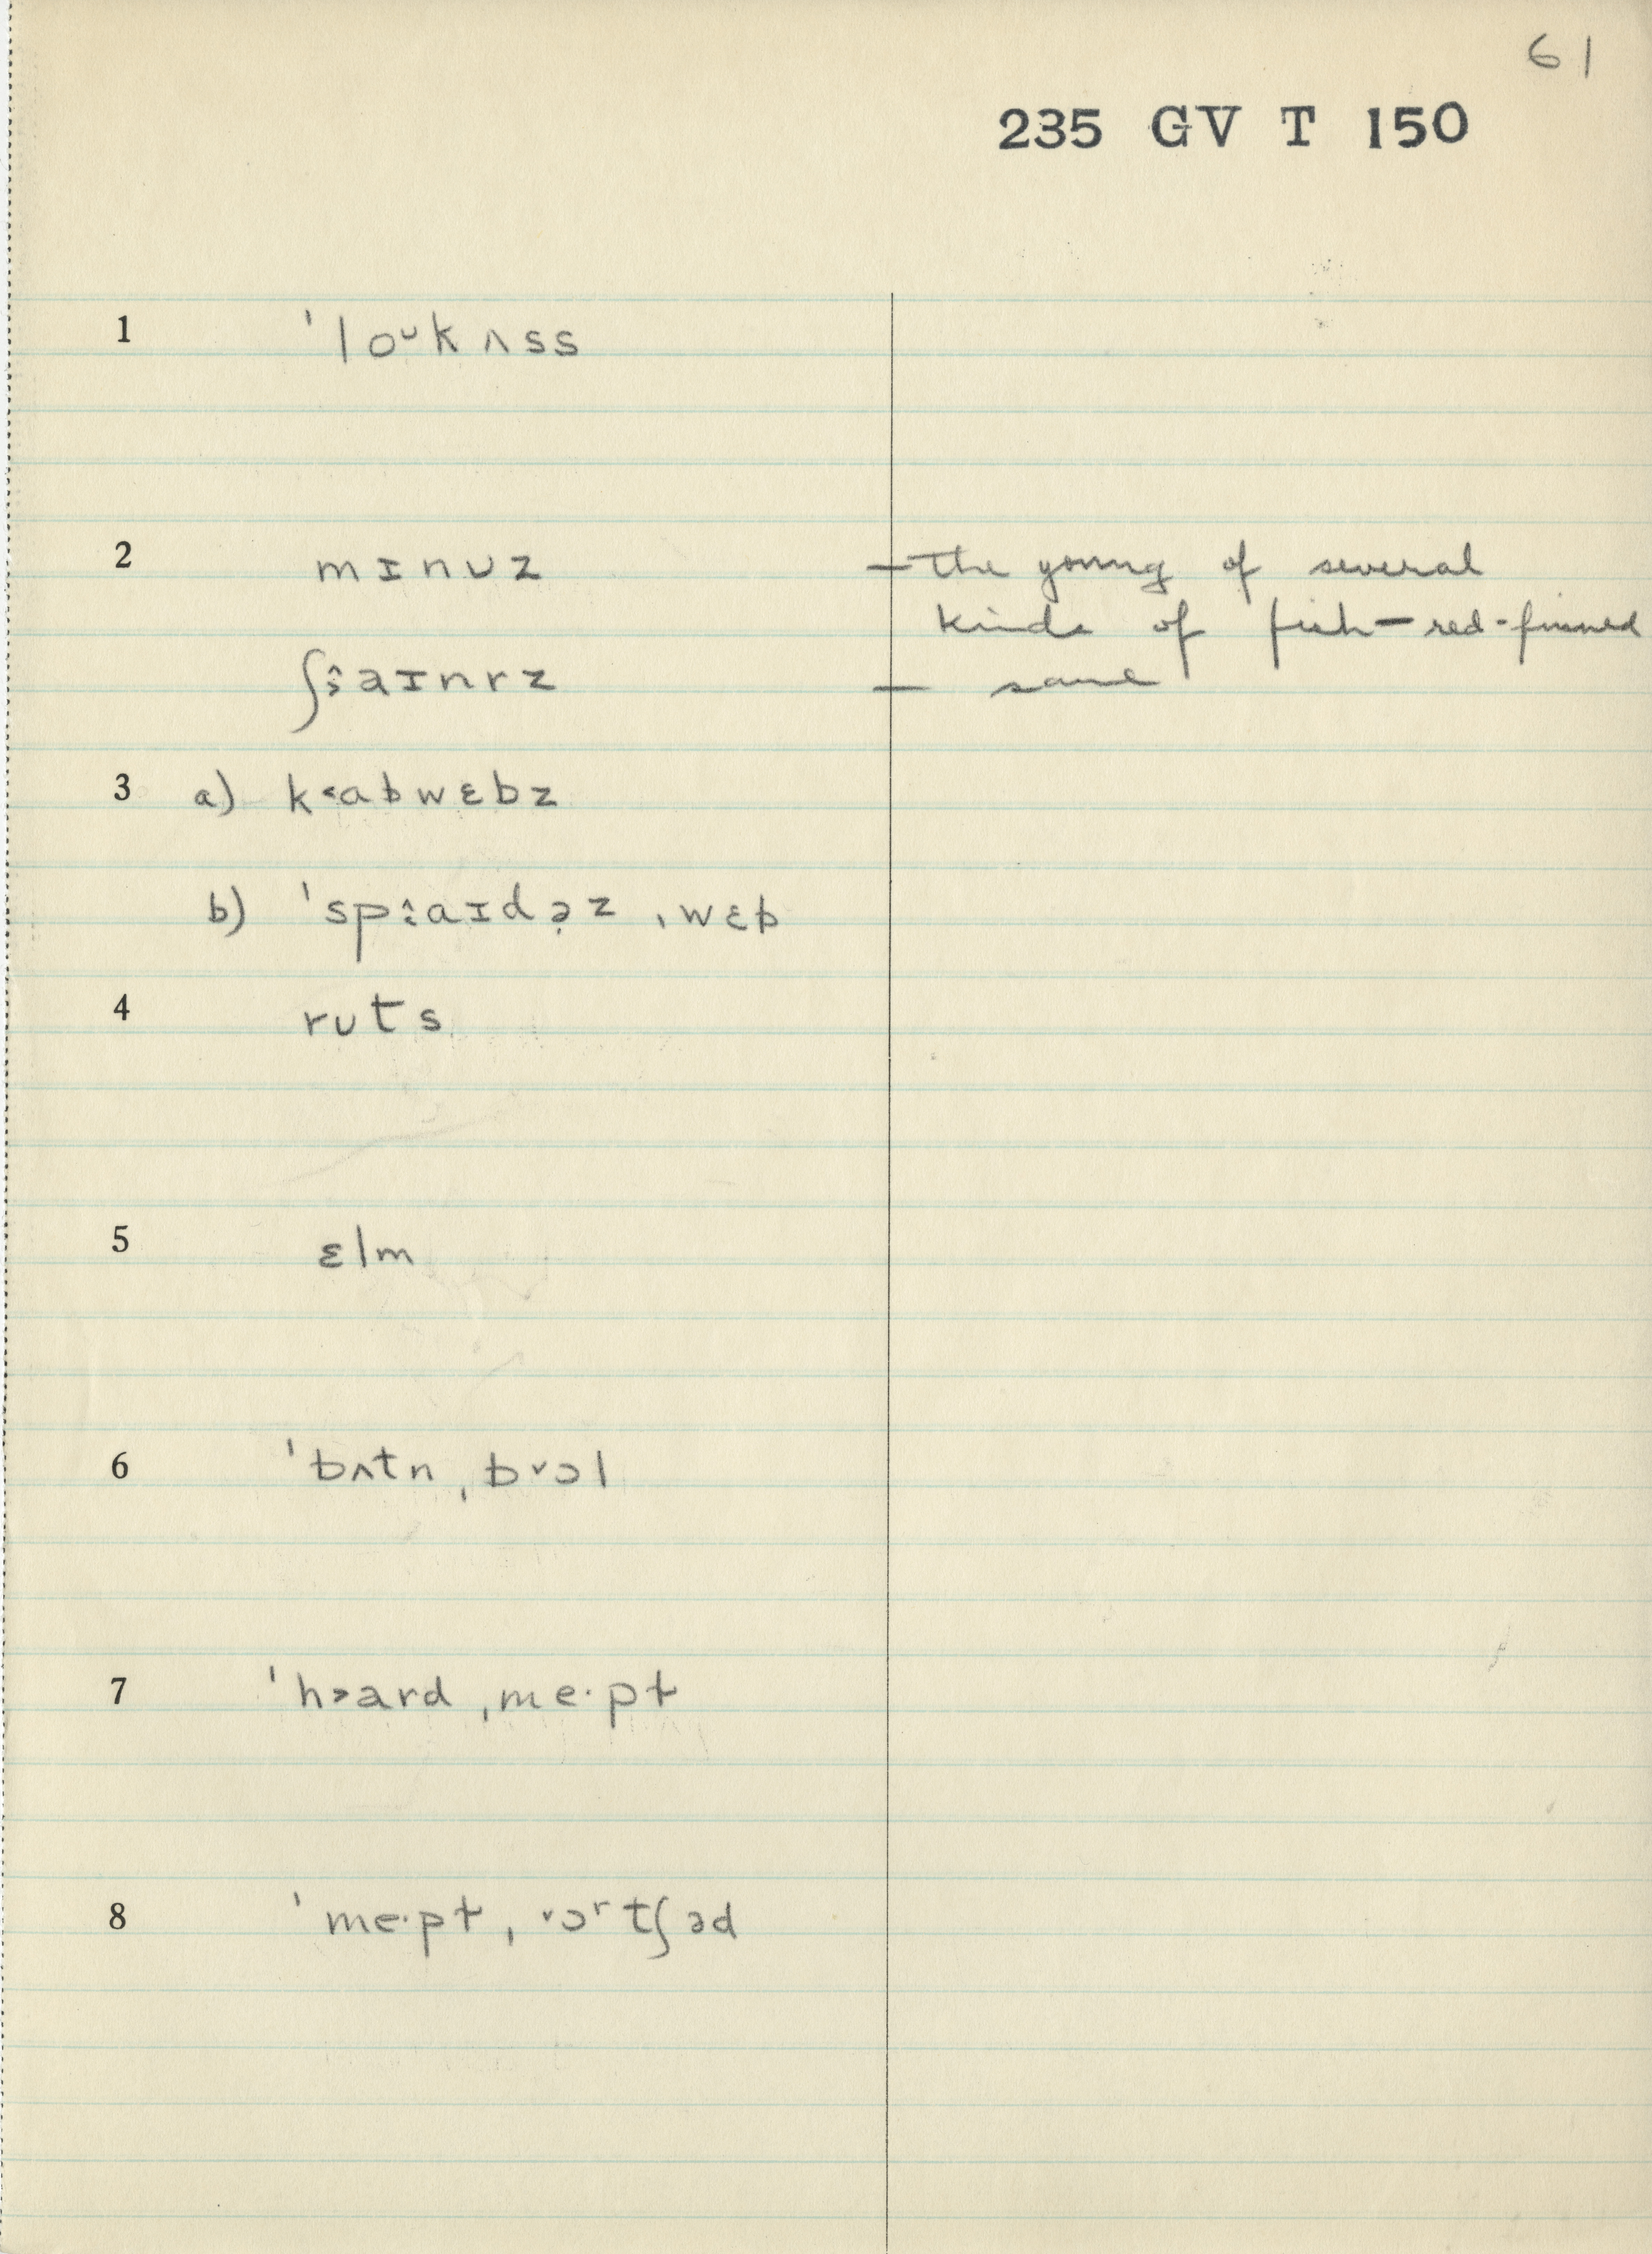 61
235 GV T 150
1 ˈloᴜkʌss
2 mɪnᴜz — the young of several
kinds of fish — red-finned
ʃaɪnrz — same
3 a) k˂abwɛbz
b) ˈspaɪdə̣z ˌwɛb
4 rᴜts
5 ɛlm
6 ˈbʌtn ˌb˅ɔl
7 ˈh˃ard ˌme·pɫ
8 ˈme·pɫ ˌ˅ɔʳtʃəd